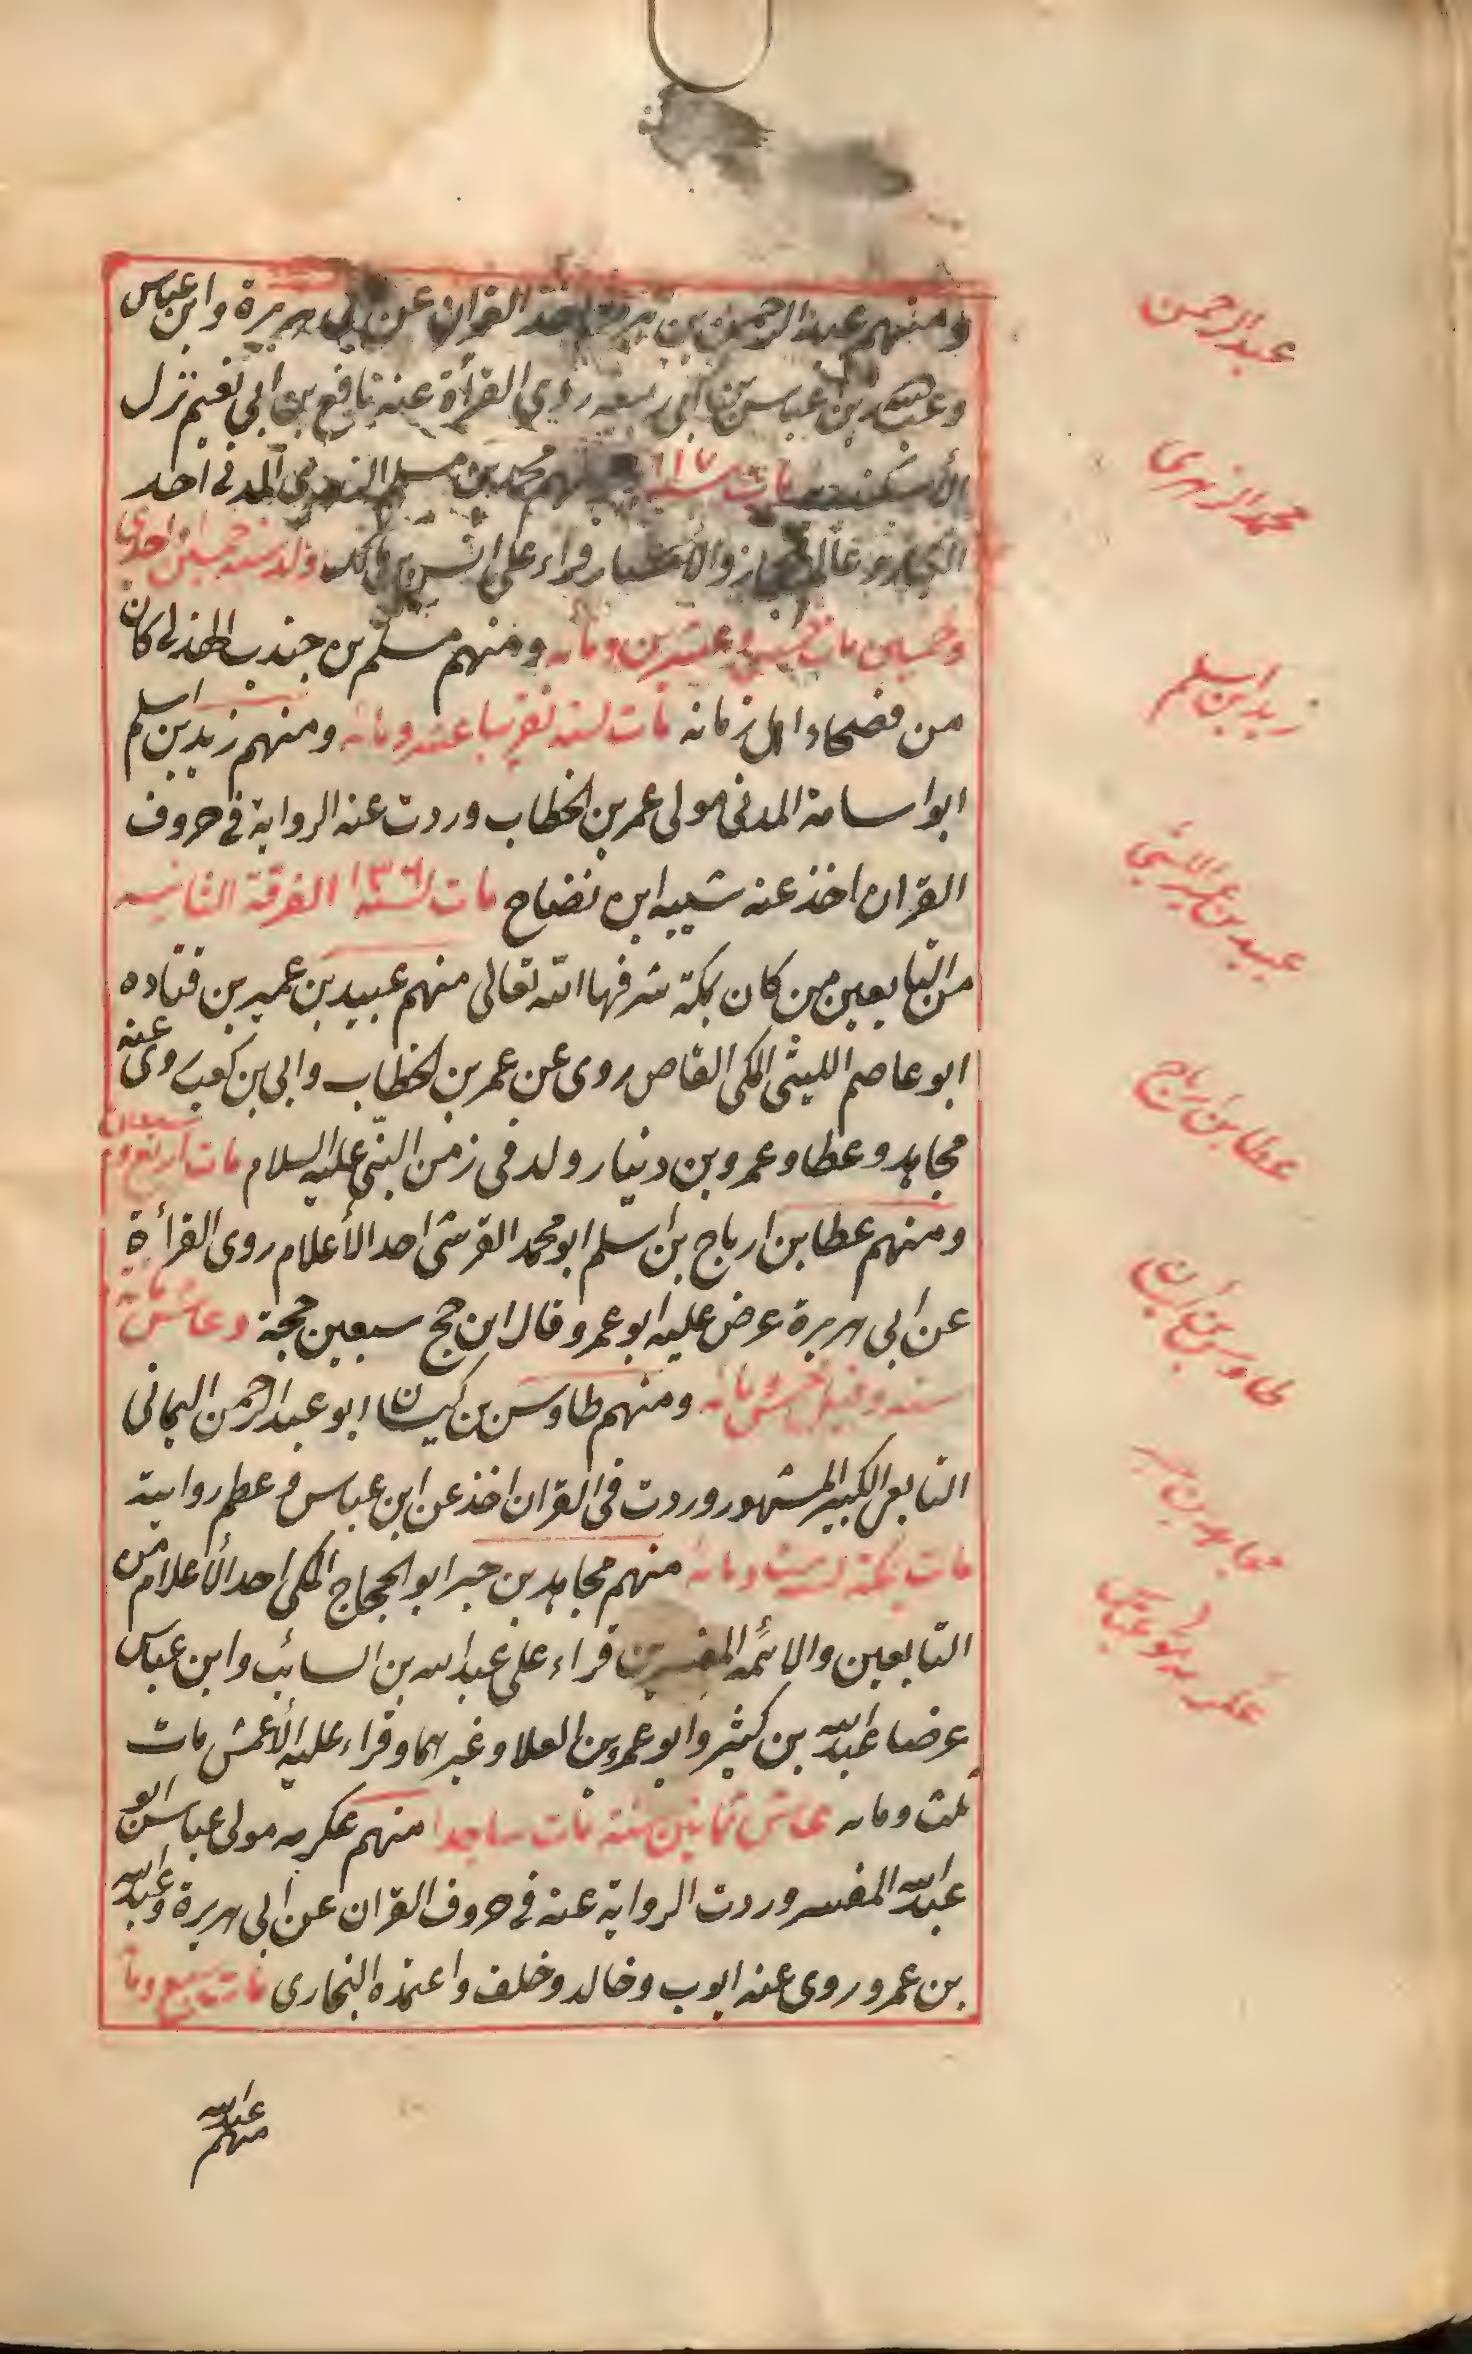 ومنهم عبد الرحمن بن هرمز اخذ القران عن ابي هريرة وابن عباس
وعبد الله بن عباس بن ابي ربيعه روي القرأة عنه نافع بن ابي نعيم نزل
الأسكندريه مات سنة ١١٧ ومنهم محمد بن مسلم الزهري المدني احد
الكبار وعالم الحجاز والأمصار قراء على انس بن مالك ولد سنه خمسين او احدى
وخمسين مات خمس وعشرين ومأه ومنهم مسلم بن جندب الهذلي كان
من فصحاء اهل زمانه مات لسنه تقريبا عشر ومائه ومنهم زيد بن اسلم
ابو اسامة المدني مولى عمر بن الخطاب وردت عنه الرواية في حروف
القران اخذ عنه شيبه ابن نضاح مات لسنه ١٣٦ الفرقة الثانيه
من التابعين من كان بمكة شرفها الله تعالى منهم عبيد بن عمير بن قتاده
ابو عاصم الليثي المكي القاص روى عن عمر بن الخطاب وابي بن كعب روى عنه
مجاهد وعطا وعمرو بن دينار ولد في زمن النبي عليه السلام مات اربع وسبعين
ومنهم عطا بن ارباح بن اسلم ابو محمد القرشي احد الأعلام روى القرأة
عن ابي هريرة عرض عليه ابو عمرو قال ابن حج سبعين حجة وعاش مائة
سنه وقيل خمس مائه ومنهم طاوس بن كيسان ابو عبد الرحمن اليماني
التابعي الكبير المشهور وردت في القران اخذ عن ابن عباس وعظم روايته
مات بمكة لست ومائه منهم مجاهد بن جبر ابو الحجاج المكي احد الأعلام من
التابعين والائمه المفسرين قراء على عبد الله بن السائب وابن عباس
عرضا عبد الله بن كثير وابو عمرو بن العلا وغيرهما وقراء عليه الأعمش مات
ثلث ومايه عاش ثمانين سنه مات ساجدا منهم عكرمه مولى عباس ابو
عبد الله المفسر وردت الرواية عنه في حروف القران عن ابي هريرة وعبد الله
بن عمرو روى عنه ايوب وخالد وخلف واعتمده البخاري مات سبع وما
عبد الله
منهم
عبد الرحمن
محمد الزهرى
زيد ابن اسلم
عبيد بن عمير الليثي
عطا بن ارباح
طاوس بن كيسان
مجاهد بن جبر
عكرمه ابو عباس